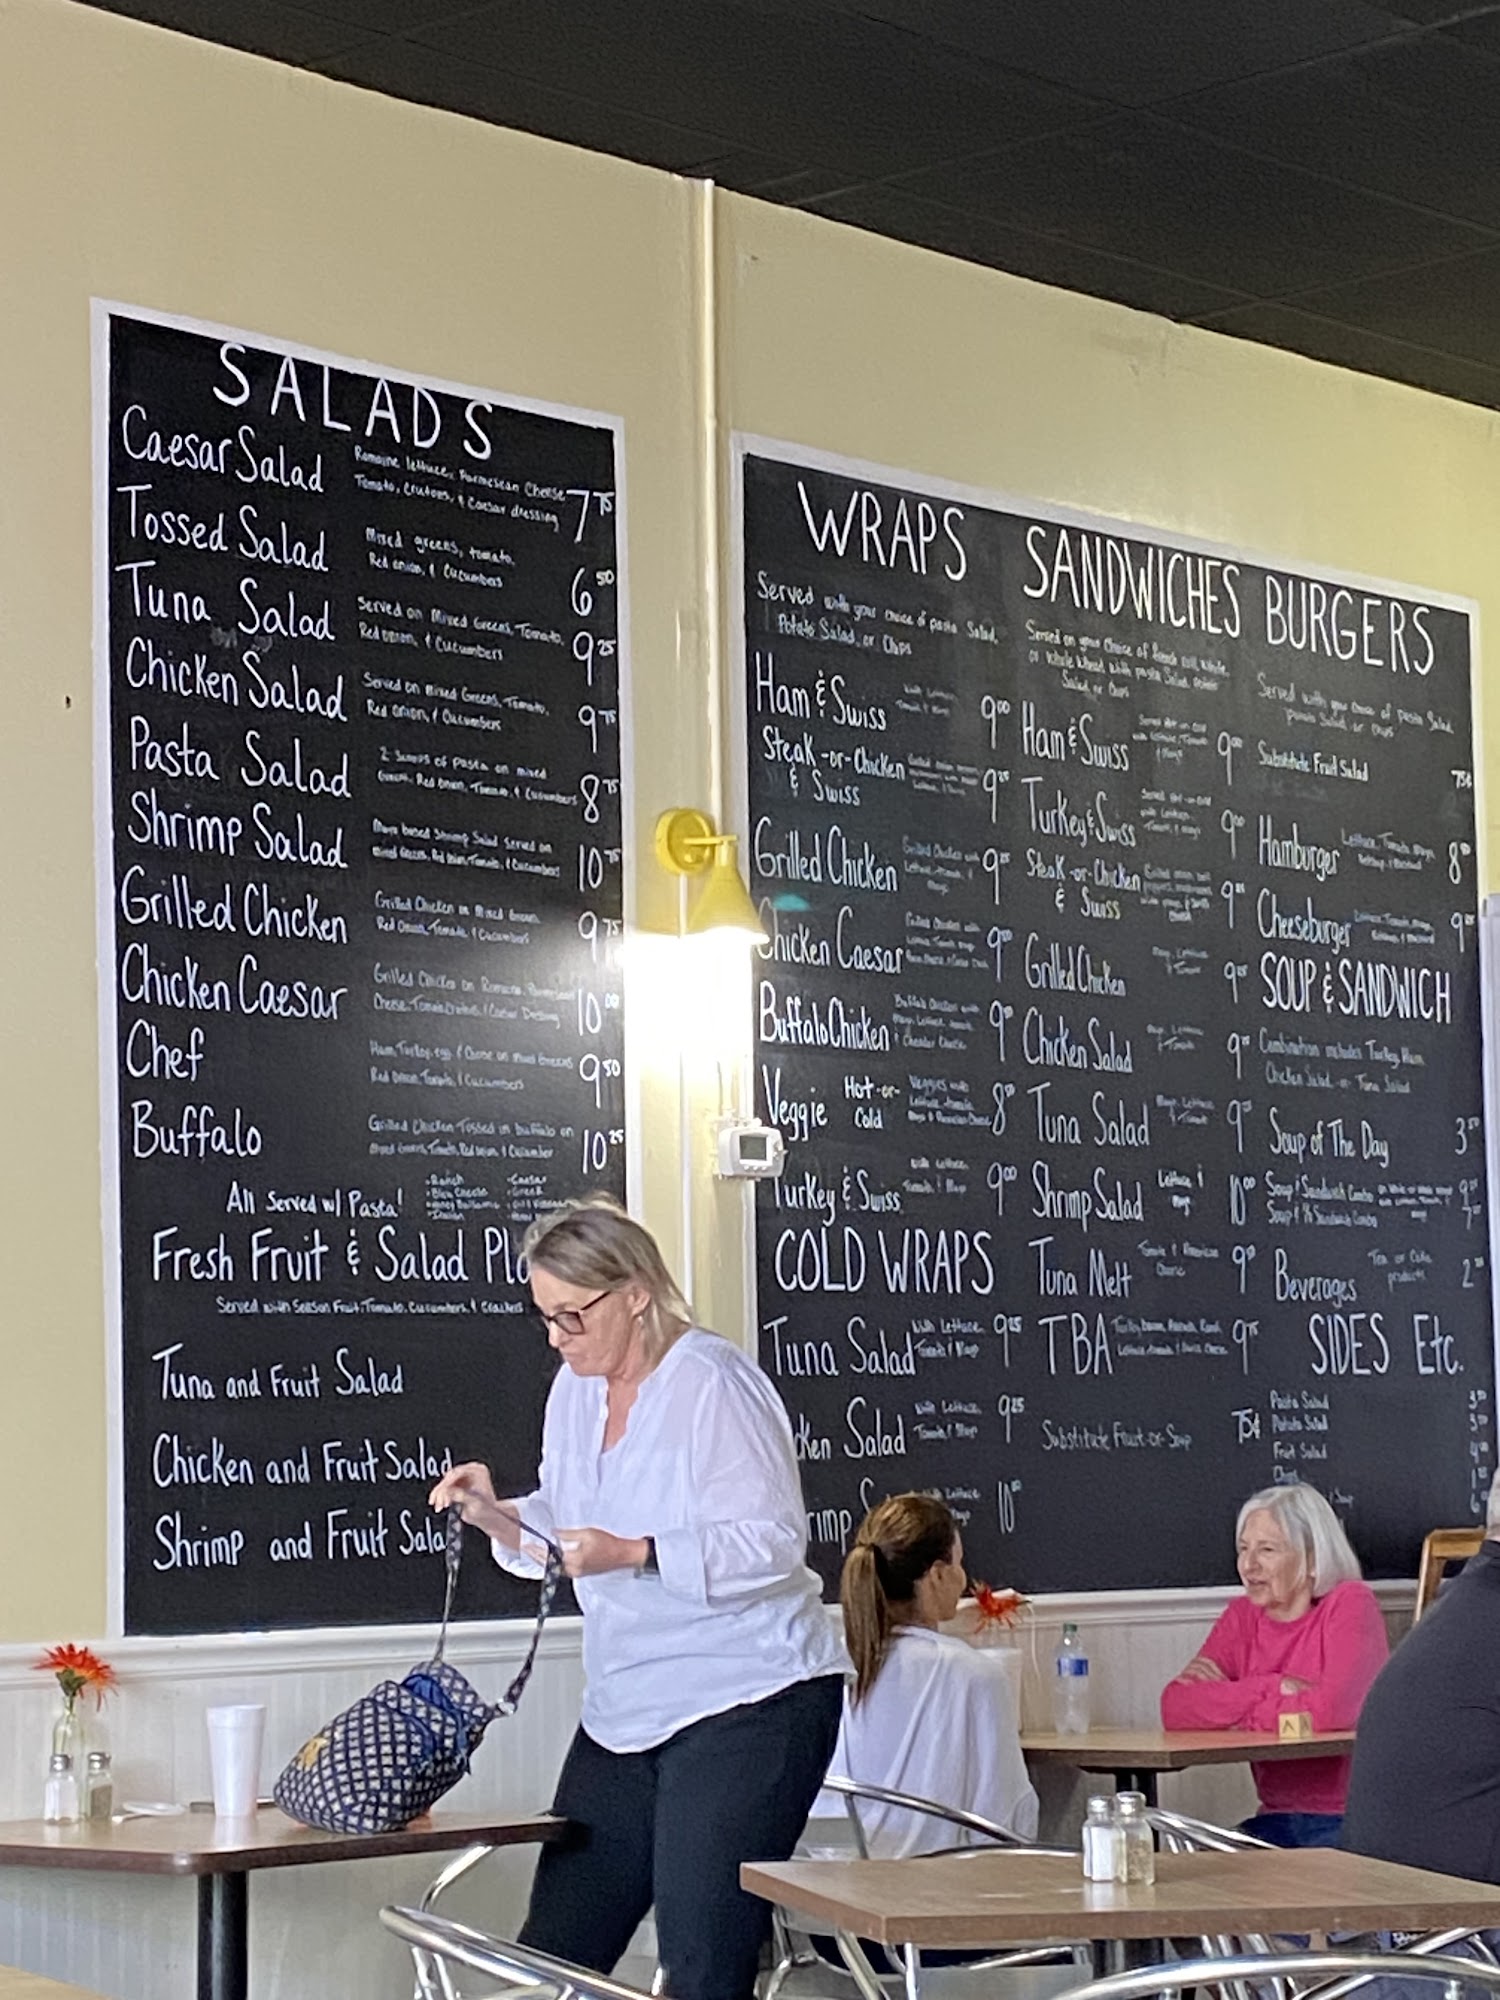 SALADS
Caesar Salad Romaine lettuce, Parmesean Cheese 7 75
Tomato, Crutons, & Caesar dressing
Tossed Salad Mixed greens, tomato, 6 50
Red onion, & Cucumbers
Tuna Salad Served on Mixed Greens, Tomato, 9 25
Red onion, & Cucumbers
Chicken Salad Served on Mixed Greens, Tomato, 9 75
Red onion, & Cucumbers
Pasta Salad 2 Scoops of Pasta on mixed 8 75
Greens, Red Onion, Tomato, & Cucumbers
Shrimp Salad Mayo based Shrimp Salad Served on 10 75
Mixed Greens, Red Onion, Tomato, & Cucumbers
Grilled Chicken Grilled Chicken on Mixed Greens 9 75
Red Onion, Tomato, & Cucumbers
Chicken Caesar Grilled Chicken on Romaine, Parmesean 10 00
Cheese, Tomato, Crutons, & Caesar Dressing
Chef Ham, Turkey, egg & Cheese on Mixed Greens 9 50
Red Onion, Tomato, & Cucumbers
Buffalo Grilled Chicken Tossed in buffalo on 10 25
Mixed Greens, Tomato, Red onion, & Cucumber
All Served w/ Pasta!
• Ranch • Caesar
• Bleu Cheese • Greek
• Italian
Fresh Fruit & Salad Pla
Served with Season Fruit, Tomato, Cucumbers, & Crackers
Tuna and Fruit Salad
Chicken and Fruit Salad
Shrimp and Fruit Sala
WRAPS
Served with your choice of pasta Salad,
Potato Salad, or Chips
Ham & Swiss With Lettuce 9 00
Tomato & Mayo
Steak -or- Chicken 9 25
& Swiss
Grilled Chicken Grilled Chicken with 9 25
Lettuce, tomato, &
Mayo
Chicken Caesar Grilled Chicken with 9
Buffalo Chicken Buffalo Chicken with 9
Mayo, Lettuce, tomato
& Cheddar Cheese
Veggie Hot -or- Cold Veggies with 8 50
Lettuce, tomato
Mayo &
Turkey & Swiss With Lettuce 9 00
Tomato & Mayo
COLD WRAPS
Tuna Salad With Lettuce 9 25
Tomato & Mayo
cken Salad With Lettuce 9 25
Tomato & Mayo
rimp S With Lettuce 10
SANDWICHES
Served on your choice of french roll, White,
or Whole Wheat with pasta Salad, Potato
Salad, or Chips
Ham & Swiss Served Hot -or- Cold 9 00
with Lettuce, Tomato
& Mayo
Turkey & Swiss Served Hot -or- Cold 9 00
with Lettuce,
Tomato, & Mayo
Steak -or- Chicken 9
& Swiss
Grilled Chicken Mayo, Lettuce 9
& Tomato
Chicken Salad Mayo, Lettuce 9
& Tomato
Tuna Salad Mayo, Lettuce 9
& Tomato
Shrimp Salad Lettuce & 10 00
Mayo
Tuna Melt Tomato & American 9 50
Cheese
TBA 9 75
Lettuce, tomato & Swiss Cheese
Substitute Fruit -or- Soup 75¢
BURGERS
Served with your choice of pasta Salad,
potato Salad or chips
Substitute Fruit Salad 75¢
Hamburger Lettuce, Tomato, Mayo, 8
Ketchup & Mustard
Cheeseburger Lettuce, Tomato, Mayo, 9
Ketchup & Mustard
SOUP & SANDWICH
Combination includes Turkey, Ham,
Chicken Salad -or- Tuna Salad
Soup of The Day 3 50
Soup & Sandwich Combo 9
Soup & 1/2 Sandwich Combo 7
Beverages Tea or Coke 2
products
SIDES Etc.
Pasta Salad 3
Potato Salad 3
Fruit Salad 4
Chips 1
Soup 6